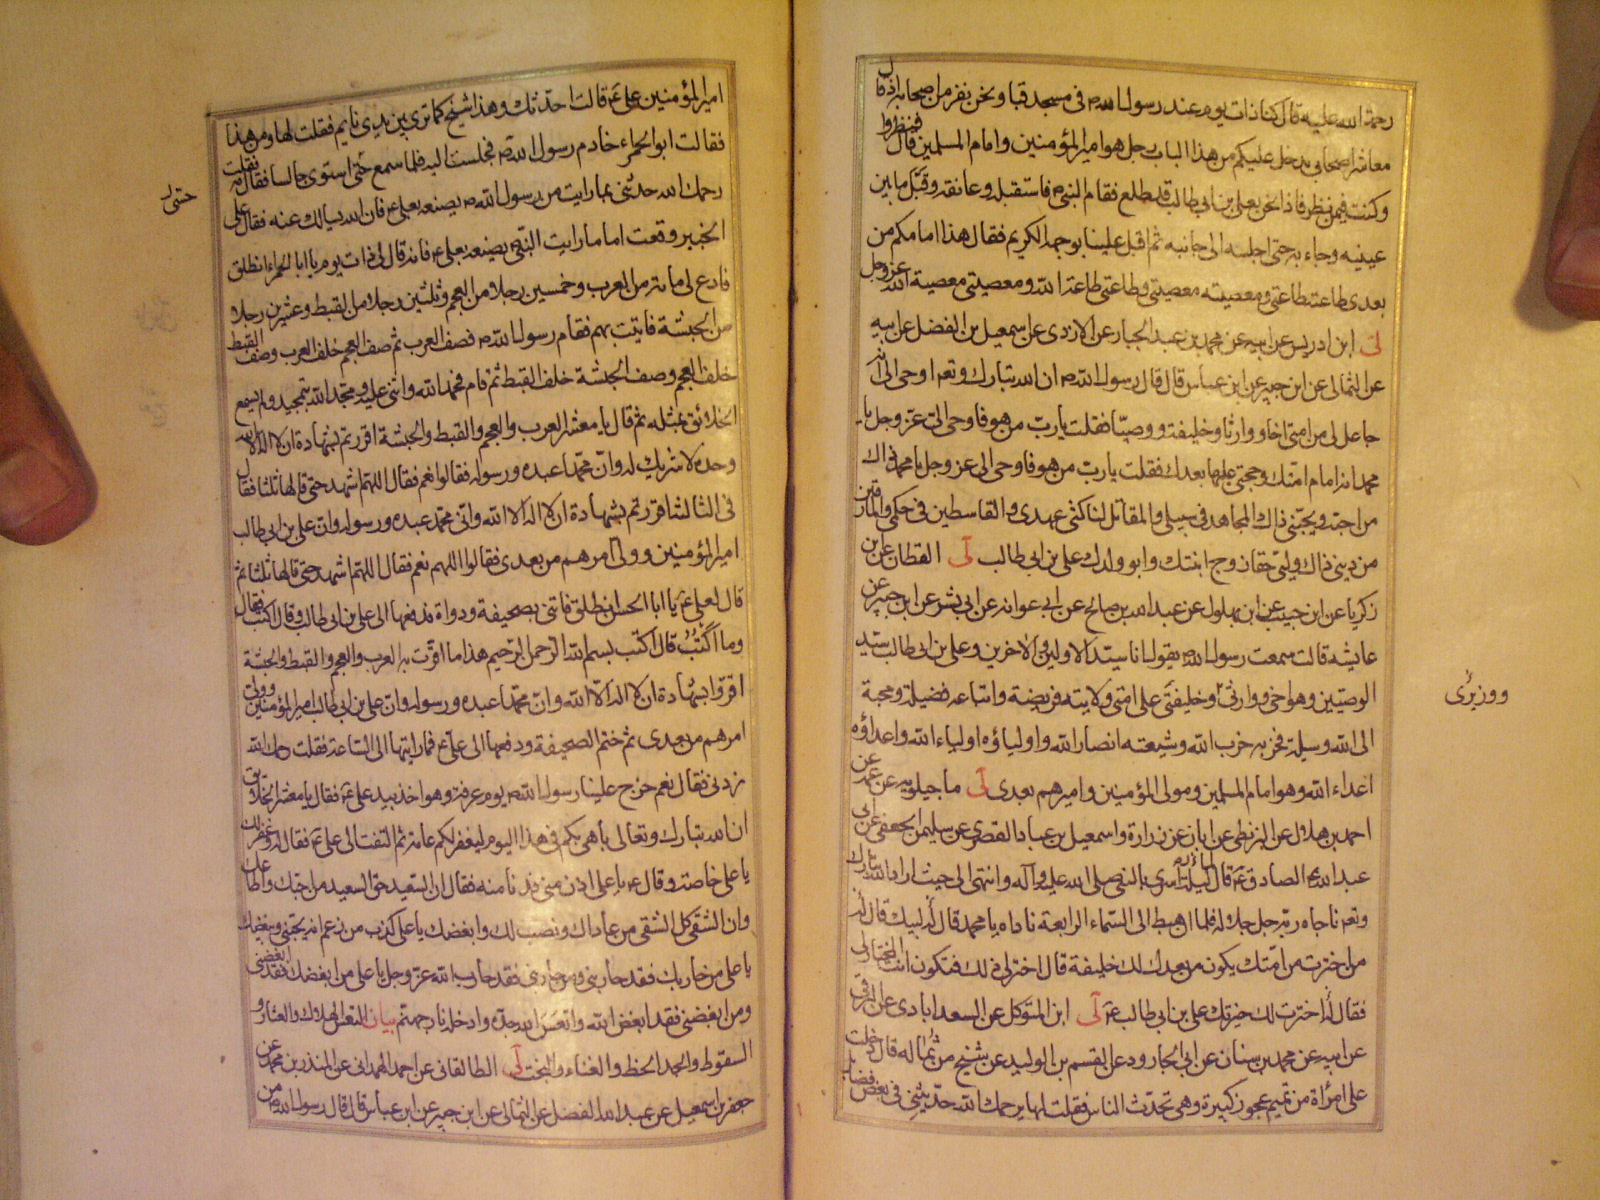 رحمة الله عليه قال كنا ذات يوم عند رسول الله ص في مسجد قبا ونحن نفر من اصحابه اذ قال
معاشر اصحابي يدخل عليكم من هذا الباب رجل هو امير المؤمنين وامام المسلمين قال فنظروا
وكنت فيمن نظر فاذا نحن بعلي بن ابي طالب قد طلع فقام النبي ص فاستقبله وعانقه وقبل ما بين
عينيه وجاء به حتى اجلسه الى جانبه ثم اقبل علينا بوجهه الكريم فقال هذا امامكم من
بعدي طاعته طاعتي ومعصيته معصيتي وطاعتي طاعة الله ومعصيتي معصية الله عز وجل
لى ابن ادريس عن ابيه عن محمد بن عبد الجبار عن الازدي عن اسمعيل بن الفضل عن ابيه
عن الثمالي عن ابن جبير عن ابن عباس قال قال رسول الله ص ان الله تبارك وتعه اوحى الى انه
جاعل لي من امتي اخا ووارثا وخليفة ووصيا فقلت يا رب من هو فاوحى الى عز وجل يا
محمد انه امام امتك وحجتي عليها بعدك فقلت يا رب من هو فاوحى الى عز وجل يا محمد ذاك
من احبه ويحبني ذاك المجاهد في سبيلي والمقاتل لناكثي عهدي والقاسطين في حكمي والمارقين
من ديني ذاك وليي حقا زوج ابنتك وابو ولدك علي بن ابي طالب لى القطان عن ابن
زكريا عن ابن حبيب عن ابن بهلول عن عبد الله بن صالح عن ابي عوانه عن ابي بشر عن ابن جبير عن
عايشه قالت سمعت رسول الله ص يقول انا سيد الاولين والاخرين وعلي بن ابي طالب سيد
الوصيين وهو اخي ووارثي وخليفتي على امتي ولايته فريضة واتباعه فضيلة ومحبة
ووزيري
الى الله وسيلة فحزبه حزب الله وشيعته انصار الله واولياؤه اولياء الله واعداؤه
اعداء الله وهو امام المسلمين ومولى المؤمنين واميرهم بعدي لى ماجيلويه عن عمه عن
احمد بن هلال عن البزنطي عن ابان عن زرارة واسمعيل بن عباد القصري عن سليمن الجعفي عن ابي
عبد الله الصادق ع قال لما اسري بالنبي صلى الله عليه وآله وانتهى الى حيث اراد الله تبارك
وتعه ناجاه ربه جل جلاله فلما ان هبط الى السماء الرابعة ناداه يا محمد قال لبيك قال له
من اخترت من امتك يكون من بعدك لك خليفة قال اختر لي ذلك فتكون انت المختار لي
فقال له اخترت لك خيرتك علي بن ابي طالب ع لى ابن المتوكل عن السعد ابادي عن البرقي
عن ابيه عن محمد بن سنان عن ابي الجارود عن القسم بن الوليد عن شيخ من ثماله قال دخلت
على امرأة من تميم عجوز كبيرة وهي تحدث الناس فقلت لها يرحمك الله حدثيني في بعض فضايل
امير المؤمنين علي ع قالت احدثك وهذا شيخ كما ترى بين يدي نايم فقلت لها ومن هذا
فقالت ابو الحمراء خادم رسول الله ص فجلست اليه فلما سمع حسي استوى جالسا فقال مه فقلت
حسي
رحمك الله حدثني بما رايت من رسول الله ص يصنعه بعلي ع فان الله يسالك عنه فقال على
الخبير وقعت اما ما رايت النبي ص يصنعه بعلي ع فانه قال لي ذات يوم يا ابا الحمراء انطلق
فادع لي مائة من العرب وخمسين رجلا من العجم وثلثين رجلا من القبط وعشرين رجلا
من الحبشة فاتيت بهم فقام رسول الله ص فصف العرب ثم صف العجم خلف العرب وصف القبط
خلف العجم وصف الحبشة خلف القبط ثم قام فحمد الله واثنى عليه ومجد الله بتمجيد لم يسمع
الخلائق بمثله ثم قال يا معشر العرب والعجم والقبط والحبشة اقررتم بشهادة ان لا اله الا الله
وحده لا شريك له وان محمدا عبده ورسوله فقالوا نعم فقال اللهم اشهد حتى قالها ثلثا فقال
في الثالثة اقررتم بشهادة ان لا اله الا الله واني محمد عبده ورسوله وان علي بن ابي طالب
امير المؤمنين وولي امرهم من بعدي فقالوا اللهم نعم فقال اللهم اشهد حتى قالها ثلثا ثم
قال لعلي ع يا ابا الحسن انطلق فاتني بصحيفة ودواة فدفعها الى علي بن ابي طالب وقال اكتب فقال
وما اكتب قال اكتب بسم الله الرحمن الرحيم هذا ما اقرت به العرب والعجم والقبط والحبشة
اقروا بشهادة ان لا اله الا الله وان محمدا عبده ورسوله وان علي بن ابي طالب امير المؤمنين وولي
امرهم من بعدي ثم ختم الصحيفة ودفعها الى علي ع فما رايتها الى الساعة فقلت رحمك الله
زدني فقال نعم خرج علينا رسول الله ص يوم عرفة وهو اخذ بيد علي ع فقال يا معشر الخلائق
ان الله تبارك وتعالى باهى بكم في هذا اليوم ليغفر لكم عامة ثم التفت الى علي ع فقال له وغفر لك
يا علي خاصة وقال ع يا علي ادن مني فدنا منه فقال ان السعيد حق السعيد من احبك واطاعك
وان الشقي كل الشقي من عاداك ونصب لك وابغضك يا علي كذب من زعم انه يحبني ويبغضك
يا علي من حاربك فقد حاربني ومن حاربني فقد حارب الله عز وجل يا علي من ابغضك فقد ابغضني
ومن ابغضني فقد ابغض الله واتعس الله جده وادخله نار جهنم بيان التعس الهلاك والعثار و
السقوط والجد الحظ والغناء والبخت لى الطالقاني عن احمد الهمداني عن المنذر بن محمد عن
جعفر بن اسمعيل عن عبد الله الفضل عن الثمالي عن ابن جبير عن ابن عباس قال قال رسول الله ص من